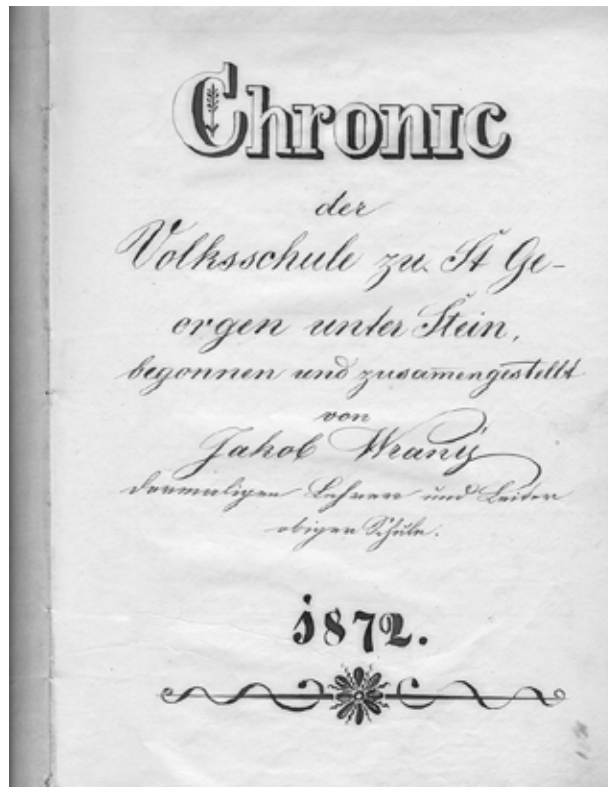 Chronic
der
Volksschule zu St Ge-
orgen unter Stein,
begonnen und zusam̅engestellt
von
Jakob Wraný
dermaligen Lehrer und Leiter
obiger Schule.
1872.